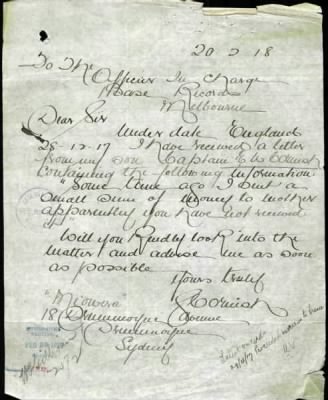 20 2 18
To The
Officer In Charge
Base Records
Melbourne
Dear Sir
Under date England
28-12-17 I have received a letter
from my son Captain
containing the following information
"Some time ago I sent a
small sum of money to mother
apparently you have not received
it"
Will you kindly look into the
matter and advise me as soon
as possible
Yours truly
"Miowera
18 Drummoyne Avenue
Drummoyne
Sydney